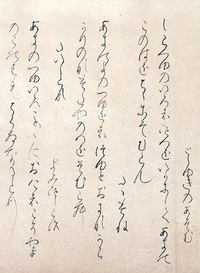 としゆきのあそむ
しらつゆのいろはひとつをいかにしてあきの
このはをちゝにそむらん
たゝみね
あきのよのつゆをはつゆとおきなから
かりのなみたやのへをそむらむ
たいしらす
よみ人しらす
あきのつゆいろ〱ことにおけはこそやま
のこのはのちくさなるらめ